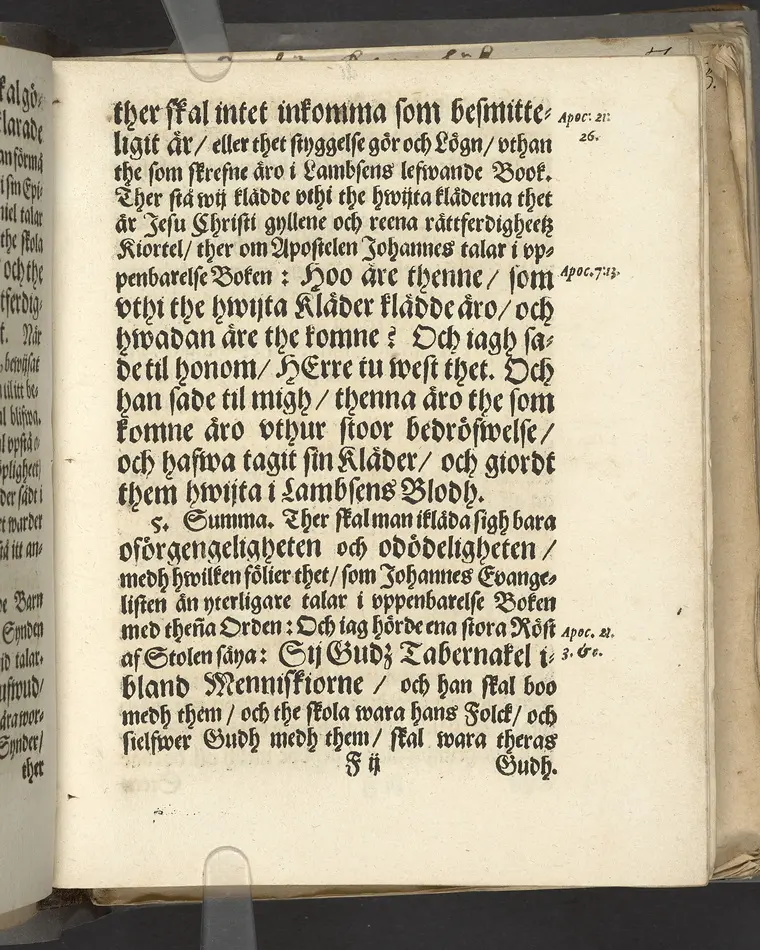 ther skal intet inkomma som besmitte-
ligit är/ eller thet styggelse gör och Lögn/ vthan
the som skrefne äro i Lambsens lefwande Book.
Ther stå wij klädde vthi the hwijta kläderna thet
är Jesu Christi gyllene och reena rättferdigheetz
Kiortel/ ther om Apostelen Johannes talar i vp-
penbarelse Boken: Hoo äre thenne/ som
vthi the hwijta Kläder klädde äro/ och
hwadan äre the komne? Och iagh sa-
de til honom/ HErre tu west thet. Och
han sade til migh/ thenna äro the som
komne äro vthur stoor bedröfwelse/
och hafwa tagit sin Kläder/ och giordt
them hwijta i Lambsens Blodh.
5. Summa. Ther skal man ikläda sigh bara
oförgengeligheten och odödeligheten/
medh hwilken fölier thet/ som Johannes Evange-
listen än yterligare talar i vppenbarelse Boken
med theña Orden: Och iag hörde ena stora Röst
af Stolen säya: Sij Gudz Tabernakel i-
bland Menniskiorne/ och han skal boo
medh them/ och the skola wara hans Folck/ och
sielfwer Gudh medh them/ skal wara theras
F ij Gudh.
Apoc. 21.
26.
Apoc. 7.13.
Apoc. 21.
3. &c.
kal gö-
klarade
an förmå
i sin Epi-
niel talar
the skola
/ och the
tferdig-
t. När
, bewijsat
til itt be-
al blifwa.
der sådt i
et warder
så itt an-
de Barn
Synden
id talar.
Synder/
ther